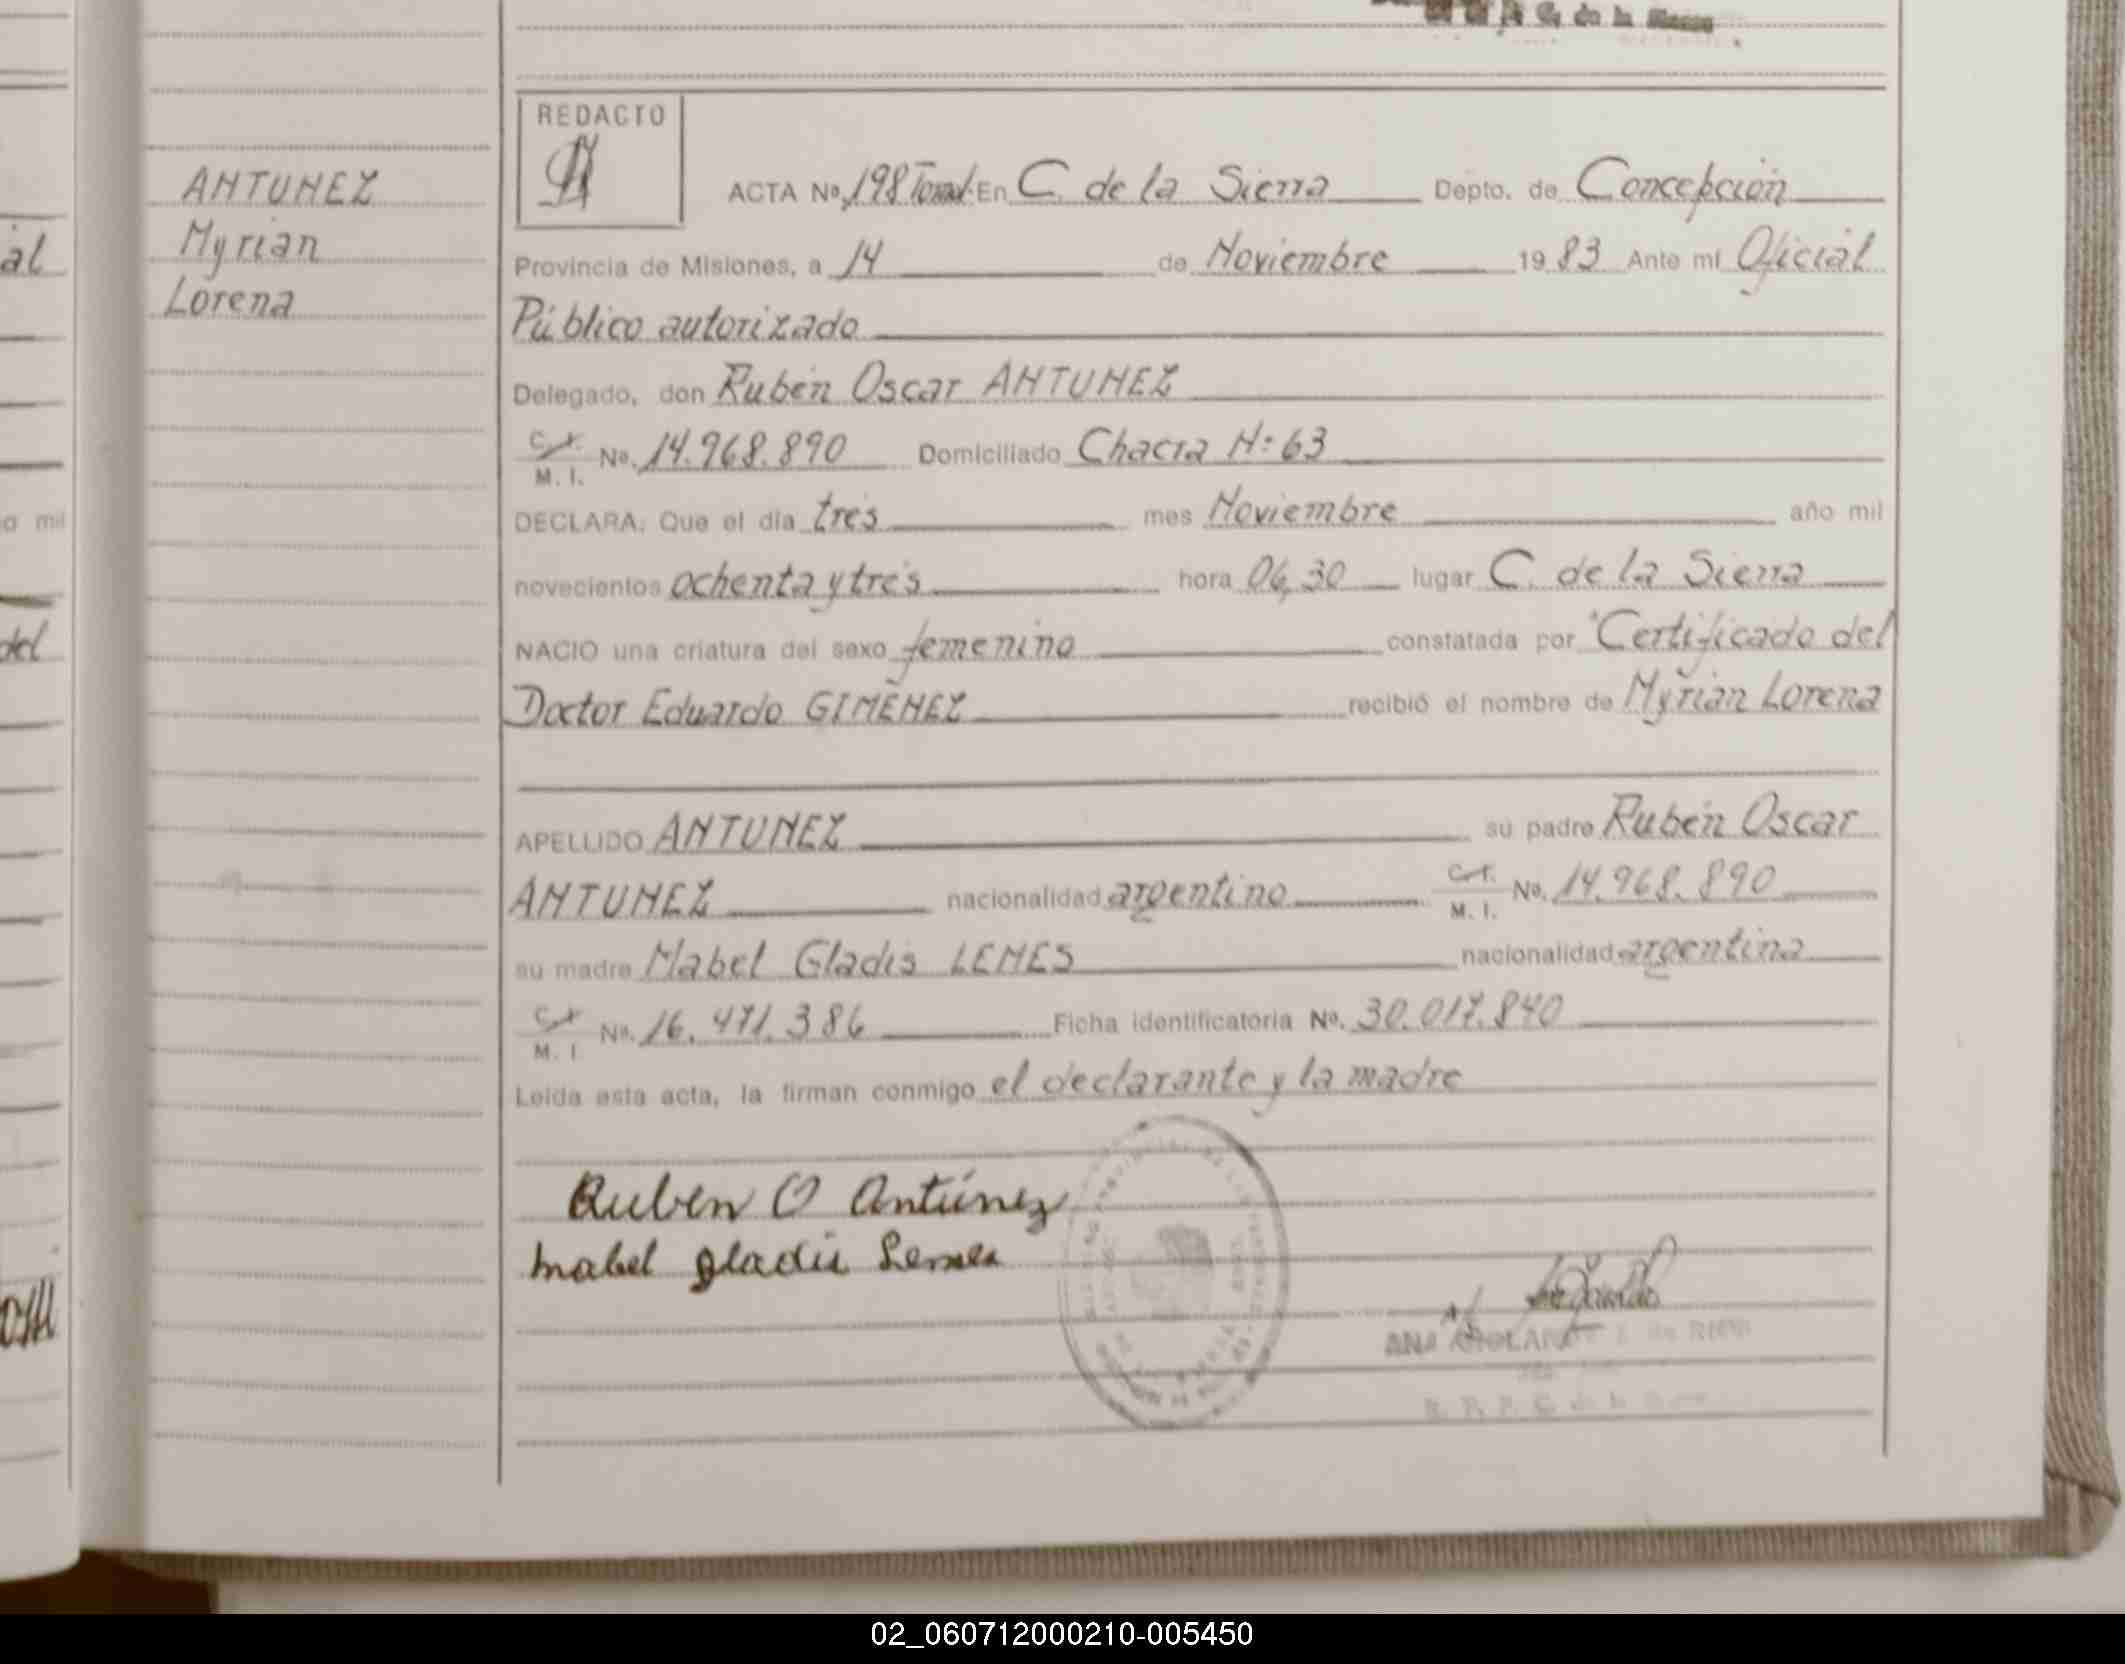 C. de la Sierra
REDACTO
ANTUNEZ
Myrian
Lorena
al
ACTA No. 198 En C. de la Sierra Depto. de Concepción
Provincia de Misiones, a 14 de Noviembre 1983 Ante mí Oficial
Público autorizado
Delegado, don Rubén Oscar ANTUNEZ
C. I.
M. I. No. 14.968.890 Domiciliado Chacra N: 63
DECLARA: Que el día tres mes Noviembre año mil
o mil
novecientos ochenta y tres hora 06,30 lugar C. de la Sierra
NACIO una criatura del sexo femenino constatada por Certificado del
del
Doctor Eduardo GIMENEZ recibió el nombre de Myrian Lorena
APELLIDO ANTUNEZ su padre Rubén Oscar
ANTUNEZ nacionalidad argentino C. I.
M. I. No. 14.968.890
su madre Mabel Gladis LEMES nacionalidad argentina
C. I.
M. I. No. 16.471.386 Ficha identificatoria No. 30.017.840
Leída esta acta, la firman conmigo el declarante y la madre
Ruben O Antúnez
Mabel gladis Lemes
ANA
02_060712000210-005450